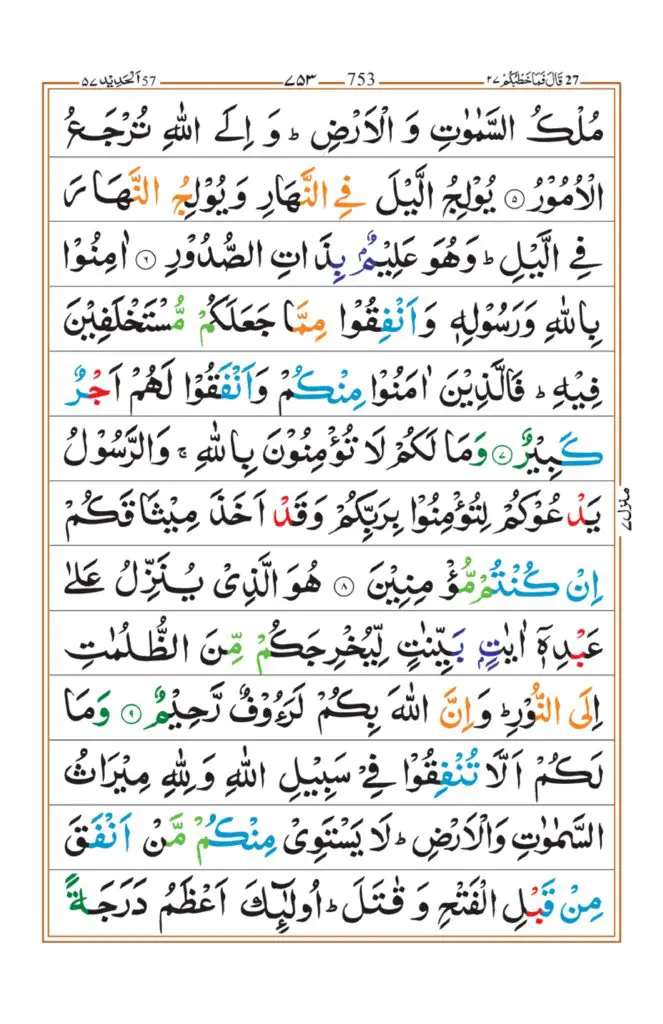 27 قَالَ فَمَا خَطْبُكُمْ ٢٧ 753 ٧٥٣ 57 اَلْحَدِيْد ٥٧
مُلْكُ السَّمٰوٰتِ وَ الْاَرْضِ ؕ وَ اِلَى اللّٰهِ تُرْجَعُ
الْاُمُوْرُ ۝٥ يُوْلِجُ الَّيْلَ فِي النَّهَارِ وَ يُوْلِجُ النَّهَارَ
فِي الَّيْلِ ؕ وَهُوَ عَلِيْمٌۢ بِذَاتِ الصُّدُوْرِ ۝٦ اٰمِنُوْا
بِاللّٰهِ وَرَسُوْلِهٖ وَاَنْفِقُوْا مِمَّا جَعَلَكُمْ مُّسْتَخْلَفِيْنَ
فِيْهِ ؕ فَالَّذِيْنَ اٰمَنُوْا مِنْكُمْ وَاَنْفَقُوْا لَهُمْ اَجْرٌ
كَبِيْرٌ ۝٧ وَمَا لَكُمْ لَا تُؤْمِنُوْنَ بِاللّٰهِ ۚ وَالرَّسُوْلُ
يَدْعُوْكُمْ لِتُؤْمِنُوْا بِرَبِّكُمْ وَقَدْ اَخَذَ مِيْثَاقَكُمْ
اِنْ كُنْتُمْ مُّؤْمِنِيْنَ ۝٨ هُوَ الَّذِيْ يُنَزِّلُ عَلٰى
عَبْدِهٖۤ اٰيٰتٍۭ بَيِّنٰتٍ لِّيُخْرِجَكُمْ مِّنَ الظُّلُمٰتِ
اِلَى النُّوْرِ ؕ وَاِنَّ اللّٰهَ بِكُمْ لَرَءُوْفٌ رَّحِيْمٌ ۝٩ وَمَا
لَكُمْ اَلَّا تُنْفِقُوْا فِيْ سَبِيْلِ اللّٰهِ وَلِلّٰهِ مِيْرَاثُ
السَّمٰوٰتِ وَالْاَرْضِ ؕ لَا يَسْتَوِيْ مِنْكُمْ مَّنْ اَنْفَقَ
مِنْ قَبْلِ الْفَتْحِ وَ قٰتَلَ ؕ اُولٰٓئِكَ اَعْظَمُ دَرَجَةً
منزل ٧